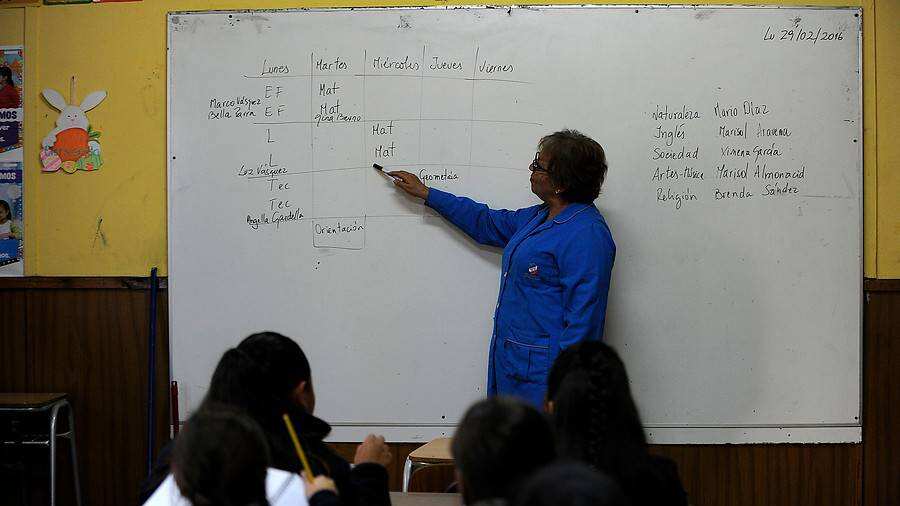 Lu 29/02/2016
Lunes Martes Miércoles Jueves Viernes
EF Mat
Marco Vásquez EF Mat
Bella Parra
L Mat
L Mat
Luz Vásquez
Tec Geometría
Tec
Orientación
Naturaleza Mario Díaz
Inglés Marisol Aravena
Sociedad Ximena García
Artes-Música Marisol Almonacid
Religión Brenda Sández
MOS
MOS